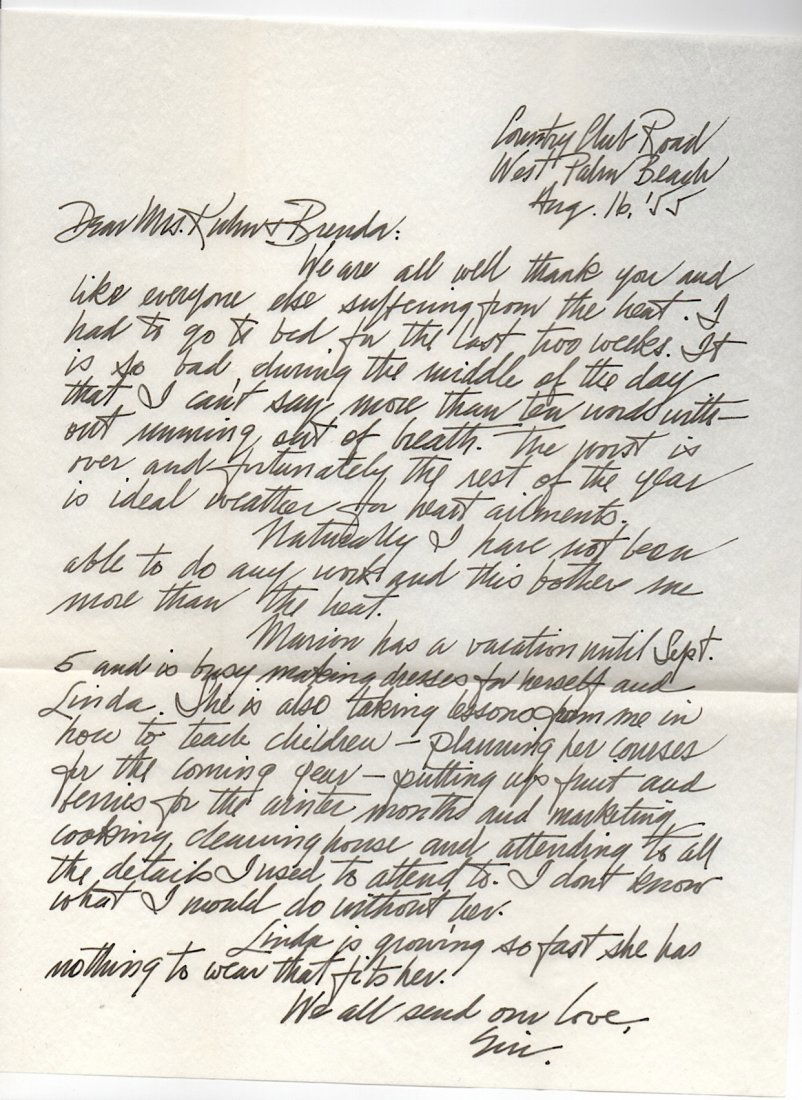 Country Club Road
West Palm Beach
Aug. 16, '55
Dear Mrs. Kuhn & Brenda:
We are all well thank you and
like everyone else suffering from the heat. I
had to go to bed for the last two weeks. It
is so bad during the middle of the day
that I can't say more than ten words with-
out running out of breath. The worst is
over and fortunately the rest of the year
is ideal weather for heart ailments.
Naturally I have not been
able to do any work and this bothers me
more than the heat.
Marion has a vacation until Sept.
5 and is busy making dresses for herself and
Linda. She is also taking lessons from me in
how to teach children – planning her courses
for the coming year – putting up fruit and
berries for the winter months and marketing
cooking, cleaning house and attending to all
the details I used to attend to. I don't know
what I would do without her.
Linda is growing so fast she has
nothing to wear that fits her.
We all send our love,